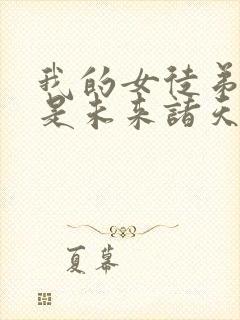 我的女徒弟
是未来諸天
夏幕